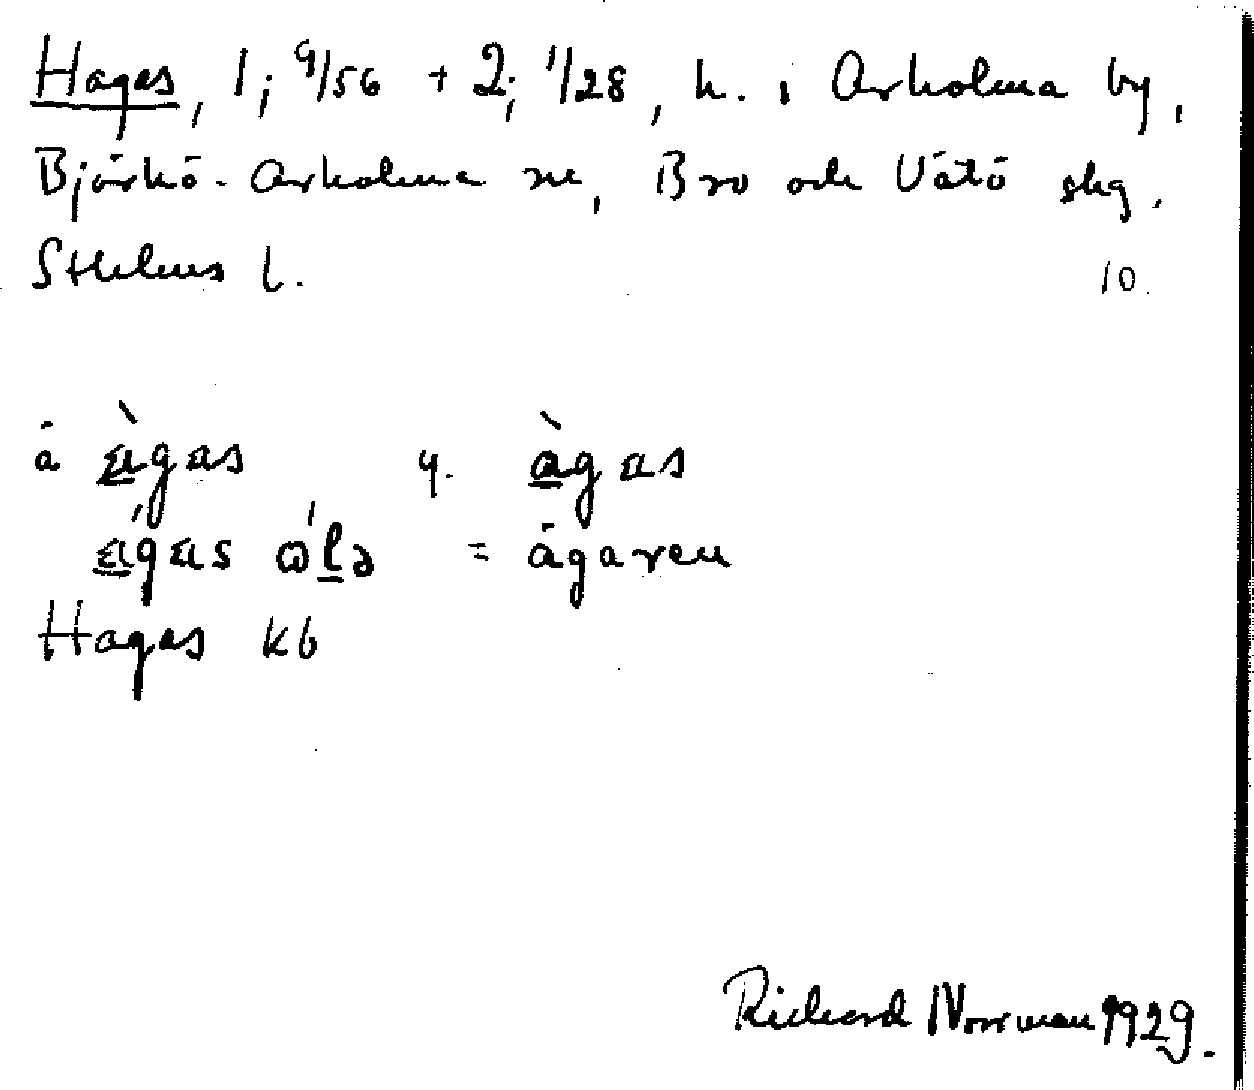 Hagas, 1; 9/56 + 2; 1/28, h. i Arholma by,
Björkö-Arholma sn, Bro och Vätö skg,
Sthlms l. 10
å àgas y. àgas
ágas ólə = ägaren
Hagas kb
Richard Norrman 1929.